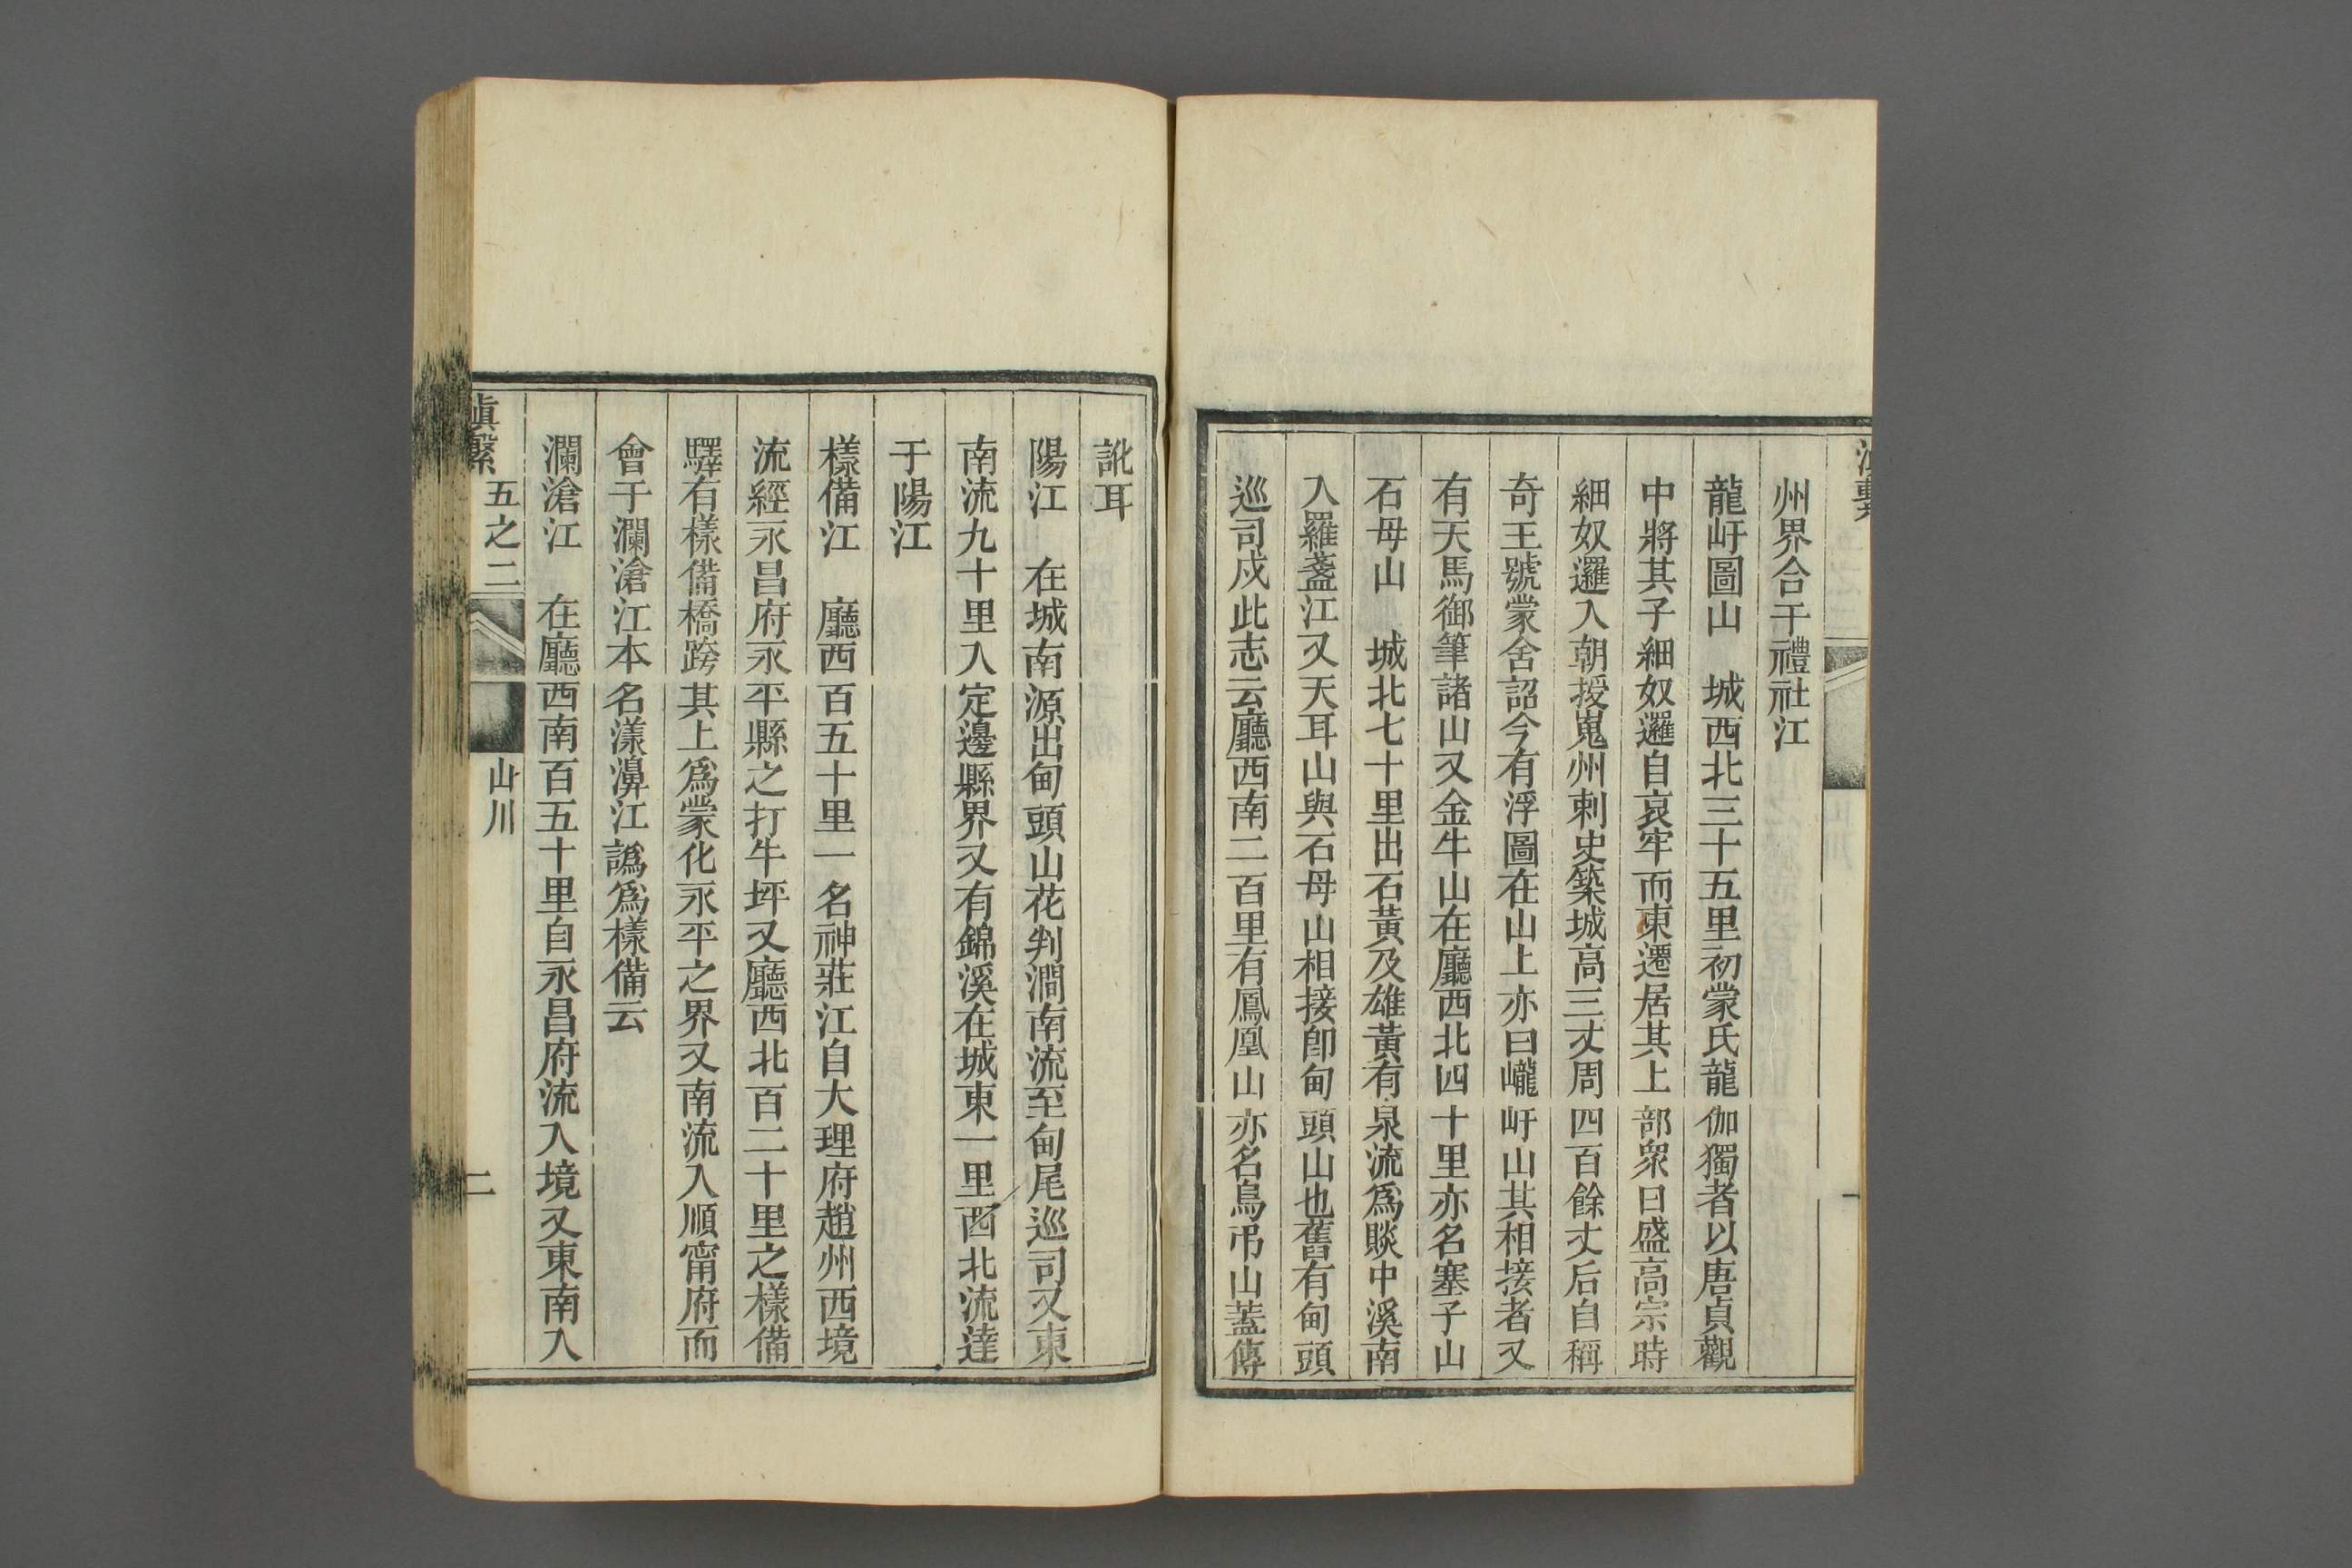 州界合于禮社江
龍屽圖山　城西北三十五里初蒙氏龍伽獨者以唐貞觀
中將其子細奴邏自哀牢而東遷居其上部衆日盛高宗時
細奴邏入朝授嵬州刺史築城高三丈周四百餘丈后自稱
奇王號蒙舍詔今有浮圖在山上亦曰巄屽山其相接者又
有天馬御筆諸山又金牛山在廳西北四十里亦名塞子山
石母山　城北七十里出石黃及雄黃有泉流爲賧中溪南
入羅盞江又天耳山與石母山相接卽甸頭山也舊有甸頭
巡司戍此志云廳西南二百里有鳳凰山亦名鳥弔山蓋傳
訛耳
陽江　在城南源出甸頭山花判澗南流至甸尾巡司又東
南流九十里入定邊縣界又有錦溪在城東一里西北流達
于陽江
樣備江　廳西百五十里一名神莊江自大理府趙州西境
流經永昌府永平縣之打牛坪又廳西北百二十里之樣備
驛有樣備橋跨其上爲蒙化永平之界又南流入順甯府而
會于瀾滄江本名漾濞江譌爲樣備云
瀾滄江　在廳西南百五十里自永昌府流入境又東南入
滇繫　五之二　山川　二